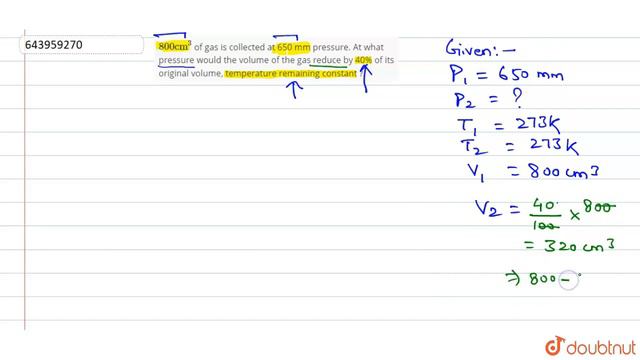 643959270
800cm³ of gas is collected at 650 mm pressure. At what
pressure would the volume of the gas reduce by 40% of its
original volume, temperature remaining constant ?
Given:-
P₁ = 650 mm
P₂ = ?
T₁ = 273K
T₂ = 273K
V₁ = 800cm³
V₂ = 40/100 × 800
= 320cm³
⇒ 800 -
doubtnut